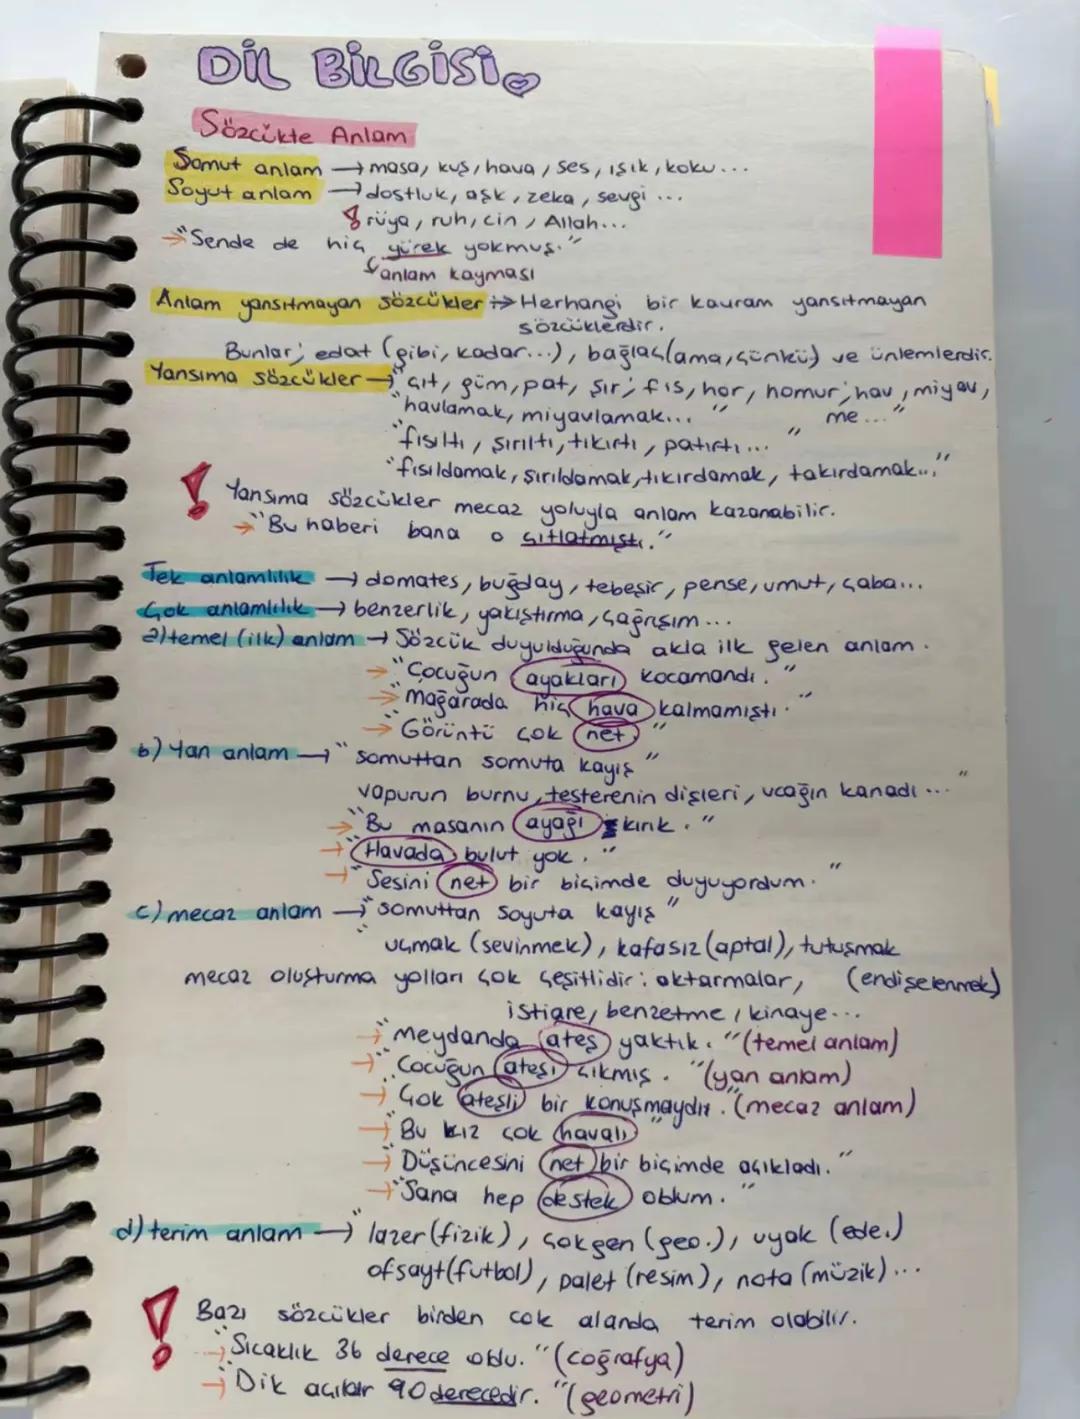 DİL BİLGİSİ
Sözcükte Anlam
Somut anlam → masa, kuş, hava, ses, ışık, koku...
Soyut anlam → dostluk, aşk, zeka, sevgi ...
rüya, ruh, cin, Allah...
→ "Sende de hiç yürek yokmuş."
anlam kayması
Anlam yansıtmayan sözcükler → Herhangi bir kavram yansıtmayan
sözcüklerdir.
Bunlar; edat (gibi, kadar...), bağlaç (ama, çünkü) ve ünlemlerdir.
Yansıma sözcükler → "çıt, güm, pat, şır, fıs, hor, homur, hav, miyav,
me..."
"havlamak, miyavlamak... "
"fısıltı, şırıltı, tıkırtı, patırtı... "
"fısıldamak, şırıldamak, tıkırdamak, takırdamak..."
! Yansıma sözcükler mecaz yoluyla anlam kazanabilir.
→ "Bu haberi bana o çıtlatmıştı."
Tek anlamlılık → domates, buğday, tebeşir, pense, umut, çaba...
Çok anlamlılık → benzerlik, yakıştırma, çağrışım...
a) temel (ilk) anlam → Sözcük duyulduğunda akla ilk gelen anlam.
→ "Çocuğun ayakları kocamandı. "
→ "Mağarada hiç hava kalmamıştı. "
→ "Görüntü çok net. "
b) Yan anlam → "somuttan somuta kayış "
vapurun burnu, testerenin dişleri, uçağın kanadı ... "
→ "Bu masanın ayağı kırık. "
→ "Havada bulut yok. "
→ "Sesini net bir biçimde duyuyordum. "
c) mecaz anlam → "somuttan soyuta kayış "
"uçmak (sevinmek), kafasız (aptal), tutuşmak
(endişelenmek)
mecaz oluşturma yolları çok çeşitlidir: aktarmalar,
istiare, benzetme, kinaye...
→ "Meydanda ateş yaktık. " (temel anlam)
→ "Çocuğun ateşi çıkmış. " (yan anlam)
→ Çok ateşli bir konuşmaydı. " (mecaz anlam)
→ "Bu kız çok havalı "
→ "Düşüncesini net bir biçimde açıkladı. "
→ "Sana hep destek oldum. "
d) terim anlam → "lazer (fizik), çokgen (geo.), uyak (ede.)
ofsayt (futbol), palet (resim), nota (müzik) ...
! Bazı sözcükler birden çok alanda terim olabilir.
→ "Sıcaklık 36 derece oldu. " (coğrafya)
→ "Dik açılar 90 derecedir. " (geometri)